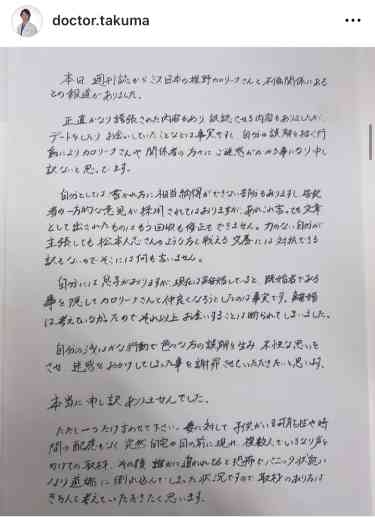 doctor.takuma
本日 週刊誌からミス日本の椎野カロリーナさんと不倫関係にある
との報道がありました。
正直かなり誇張された内容もあり 誤認させる内容もありましたが、
デートをしたり お会いしていたことなどは事実ですし 自分の誤解を招く行
動によりカロリーナさんや関係者の方々にご迷惑がかかる事になり申し
訳ないと思っています。
自分としては 書かれ方に相当納得ができない部分もありますし 告発
者の一方的な意見が採用されてはおりますが、あれこれ言っても文章
として出されたものはもう回収も修正もできません。力のない自分が
主張しても松本人志さんのような方と戦える文春には対抗できる
訳もないので そこには何も言いません。
自分には 息子がおりますが、現在は離婚していると、既婚者である
事を隠してカロリーナさんと仲良くなろうとしたのは事実です。離婚
は考えていなかったので それ以上お会いすることは断られてしまいました。
自分の浅はかな行動で 色々な方の誤解を生み 不快な思いを
させ 迷惑をおかけしてしまった事を謝罪させていただきたいと思います。
本当に申し訳ありませんでした。
ただ一つだけ言わせて下さい。妻に対して 子供がいる可能性や時
間の配慮もなく 突然 自宅の目の前に現れ 複数人でいきなり声を
かけての取材、その後 誰かに追われてると恐怖でパニック状態に
なり道端に倒れ込んでしまった状況ですので 取材のあり方は
きちんと考えていただきたく思います。